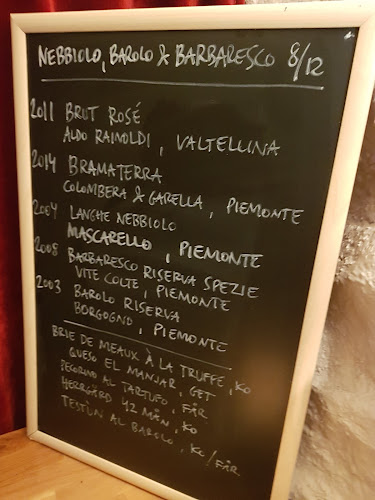 NEBBIOLO, BAROLO & BARBARESCO 8/12
2011 BRUT ROSÉ
ALDO RAINOLDI, VALTELLINA
2014 BRAMATERRA
COLOMBERA & GARELLA, PIEMONTE
2004 LANGHE NEBBIOLO
MASCARELLO, PIEMONTE
2008 BARBARESCO RISERVA SPEZIE
VITE COLTE, PIEMONTE
2003 BAROLO RISERVA
BORGOGNO, PIEMONTE
BRIE DE MEAUX À LA TRUFFE, KO
QUESO EL MANJAR, GET
PECORINO AL TARTUFO, FÅR
HERRGÅRD 42 MÅN, KO
TESTÙN AL BAROLO, KO/FÅR